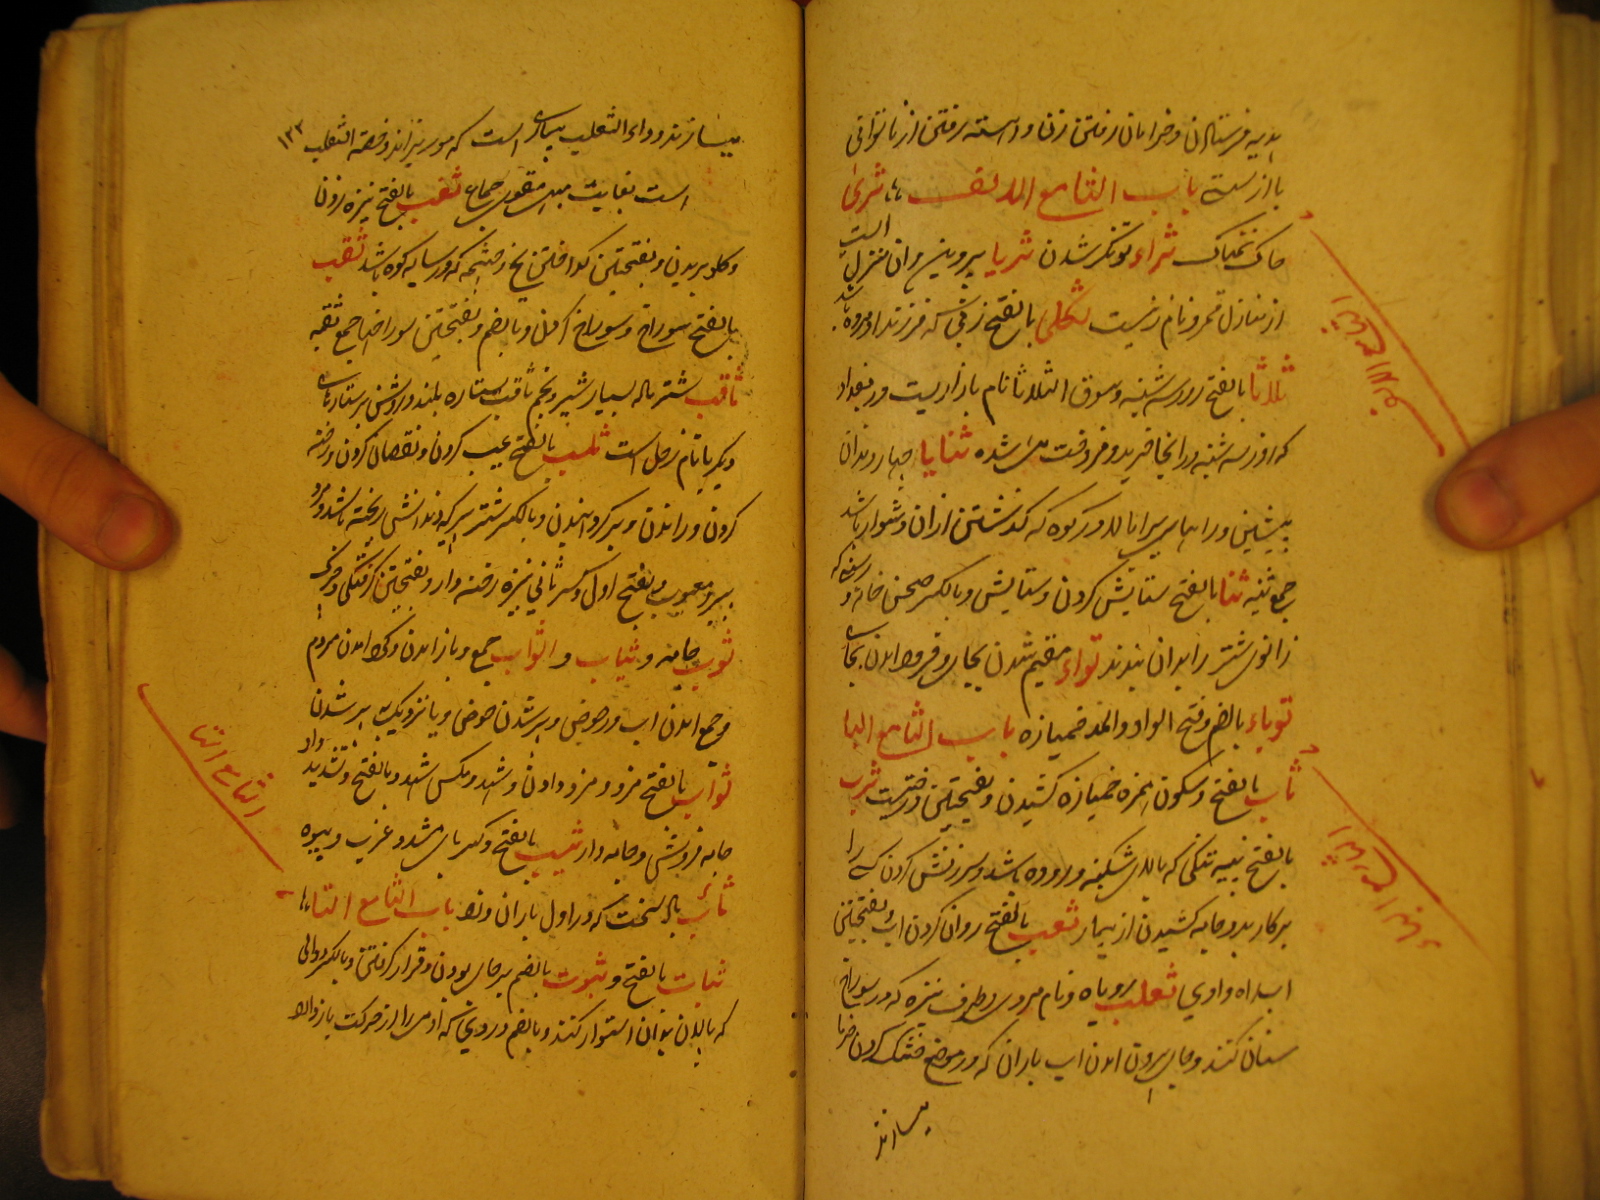 هدیه فرستادن و خرامان رفتن زن و آهسته رفتن از ناتوانی
باز ست باب الثا مع الالف ثری
خاک نمناک ثراء توانگر شدن ثریا پروین و آن منزل است
از منازل قمر و نام زنیست ثکلی بالفتح زنی که فرزند او مرده باشد
ثلاثا بالفتح روز سه شنبه و سوق الثلاثا نام بازاریست در بغداد
که روز سه شنبه در انجا خرید و فروخت می شده ثنایا چهار دندان
پیشین و راههای بالا در کوه که گذشتن ازان دشوار باشد
جمع ثنیه ثنا بالفتح ستایش کردن و ستایش و بالکسر صحن خانه و رسنی که
زانوی شتر را بدان بندند ثواء مقیم شدن بجای و فرود امدن بجای
ثوباء بالضم و فتح الواو والمد خمیازه باب الثا مع البا
ثأب بالفتح و سکون همزه خمیازه کشیدن و بفتحتین درختیست ثرب
بالفتح پیه تنکی که بالای شکنبه و روده باشد و سرزنش کردن کسی را
بر کار بد و جامه کشیدن از بیمار ثعب بالفتح روان کردن اب و بفتحتین
ابراه وادی ثعلب روباه و نام مردی و طرف نیزه که در سوراخ
سنان کنند و جای بیرون امدن اب باران که در موضع خشک کردن خرما
میسازند
میسازند و داء الثعلب بیماری است که موی بریزاند و خصیة الثعلب ۱۲۲
است بغایت مبهی مقوی جماع ثغب بالفتح نیزه زدن
و گلو بریدن و بفتحتین گداختن یخ و چشمه که در سایه کوه باشد ثقب
بالفتح سوراخ و سوراخ کردن و بالضم و بفتحتین سوراخها جمع ثقبه
ثاقب شتر ماده بسیار شیر و نجم ثاقب ستاره بلند و روشن بر ستارهای
دیگر یا نام زحل است ثلب بالفتح عیب کردن و نقصان کردن و رخنه
کردن و راندن و برگردانیدن و بالکسر شتر پیر که دندانش ریخته باشد و مرد
پیر و معیوب و بفتح اول و کسر ثانی نیزه رخنه دار و بفتحتین گرفتگی و چرک
ثوب جامه و ثیاب و اثواب جمع و باز امدن و گرد امدن مردم
و جمع امدن اب در حوض و پر شدن حوض و یا نزدیک به پر شدن
ثواب بالفتح مزد و مزد دادن و شهد و مکس شهد و بالفتح و تشدید واو
جامه فروش و جامه دار ثیب بالفتح و کسر یای مشدد عزب و بیوه
ثائب باد سخت که در اول باران وزد باب الثا مع التا
ثبات بالفتح و ثبوت بالضم بر جای بودن و قرار گرفتن و بالکسر دوالی
که پالان بدان استوار کنند و بالضم دردی که ادمی را از حرکت باز دارد
الثا مع التا